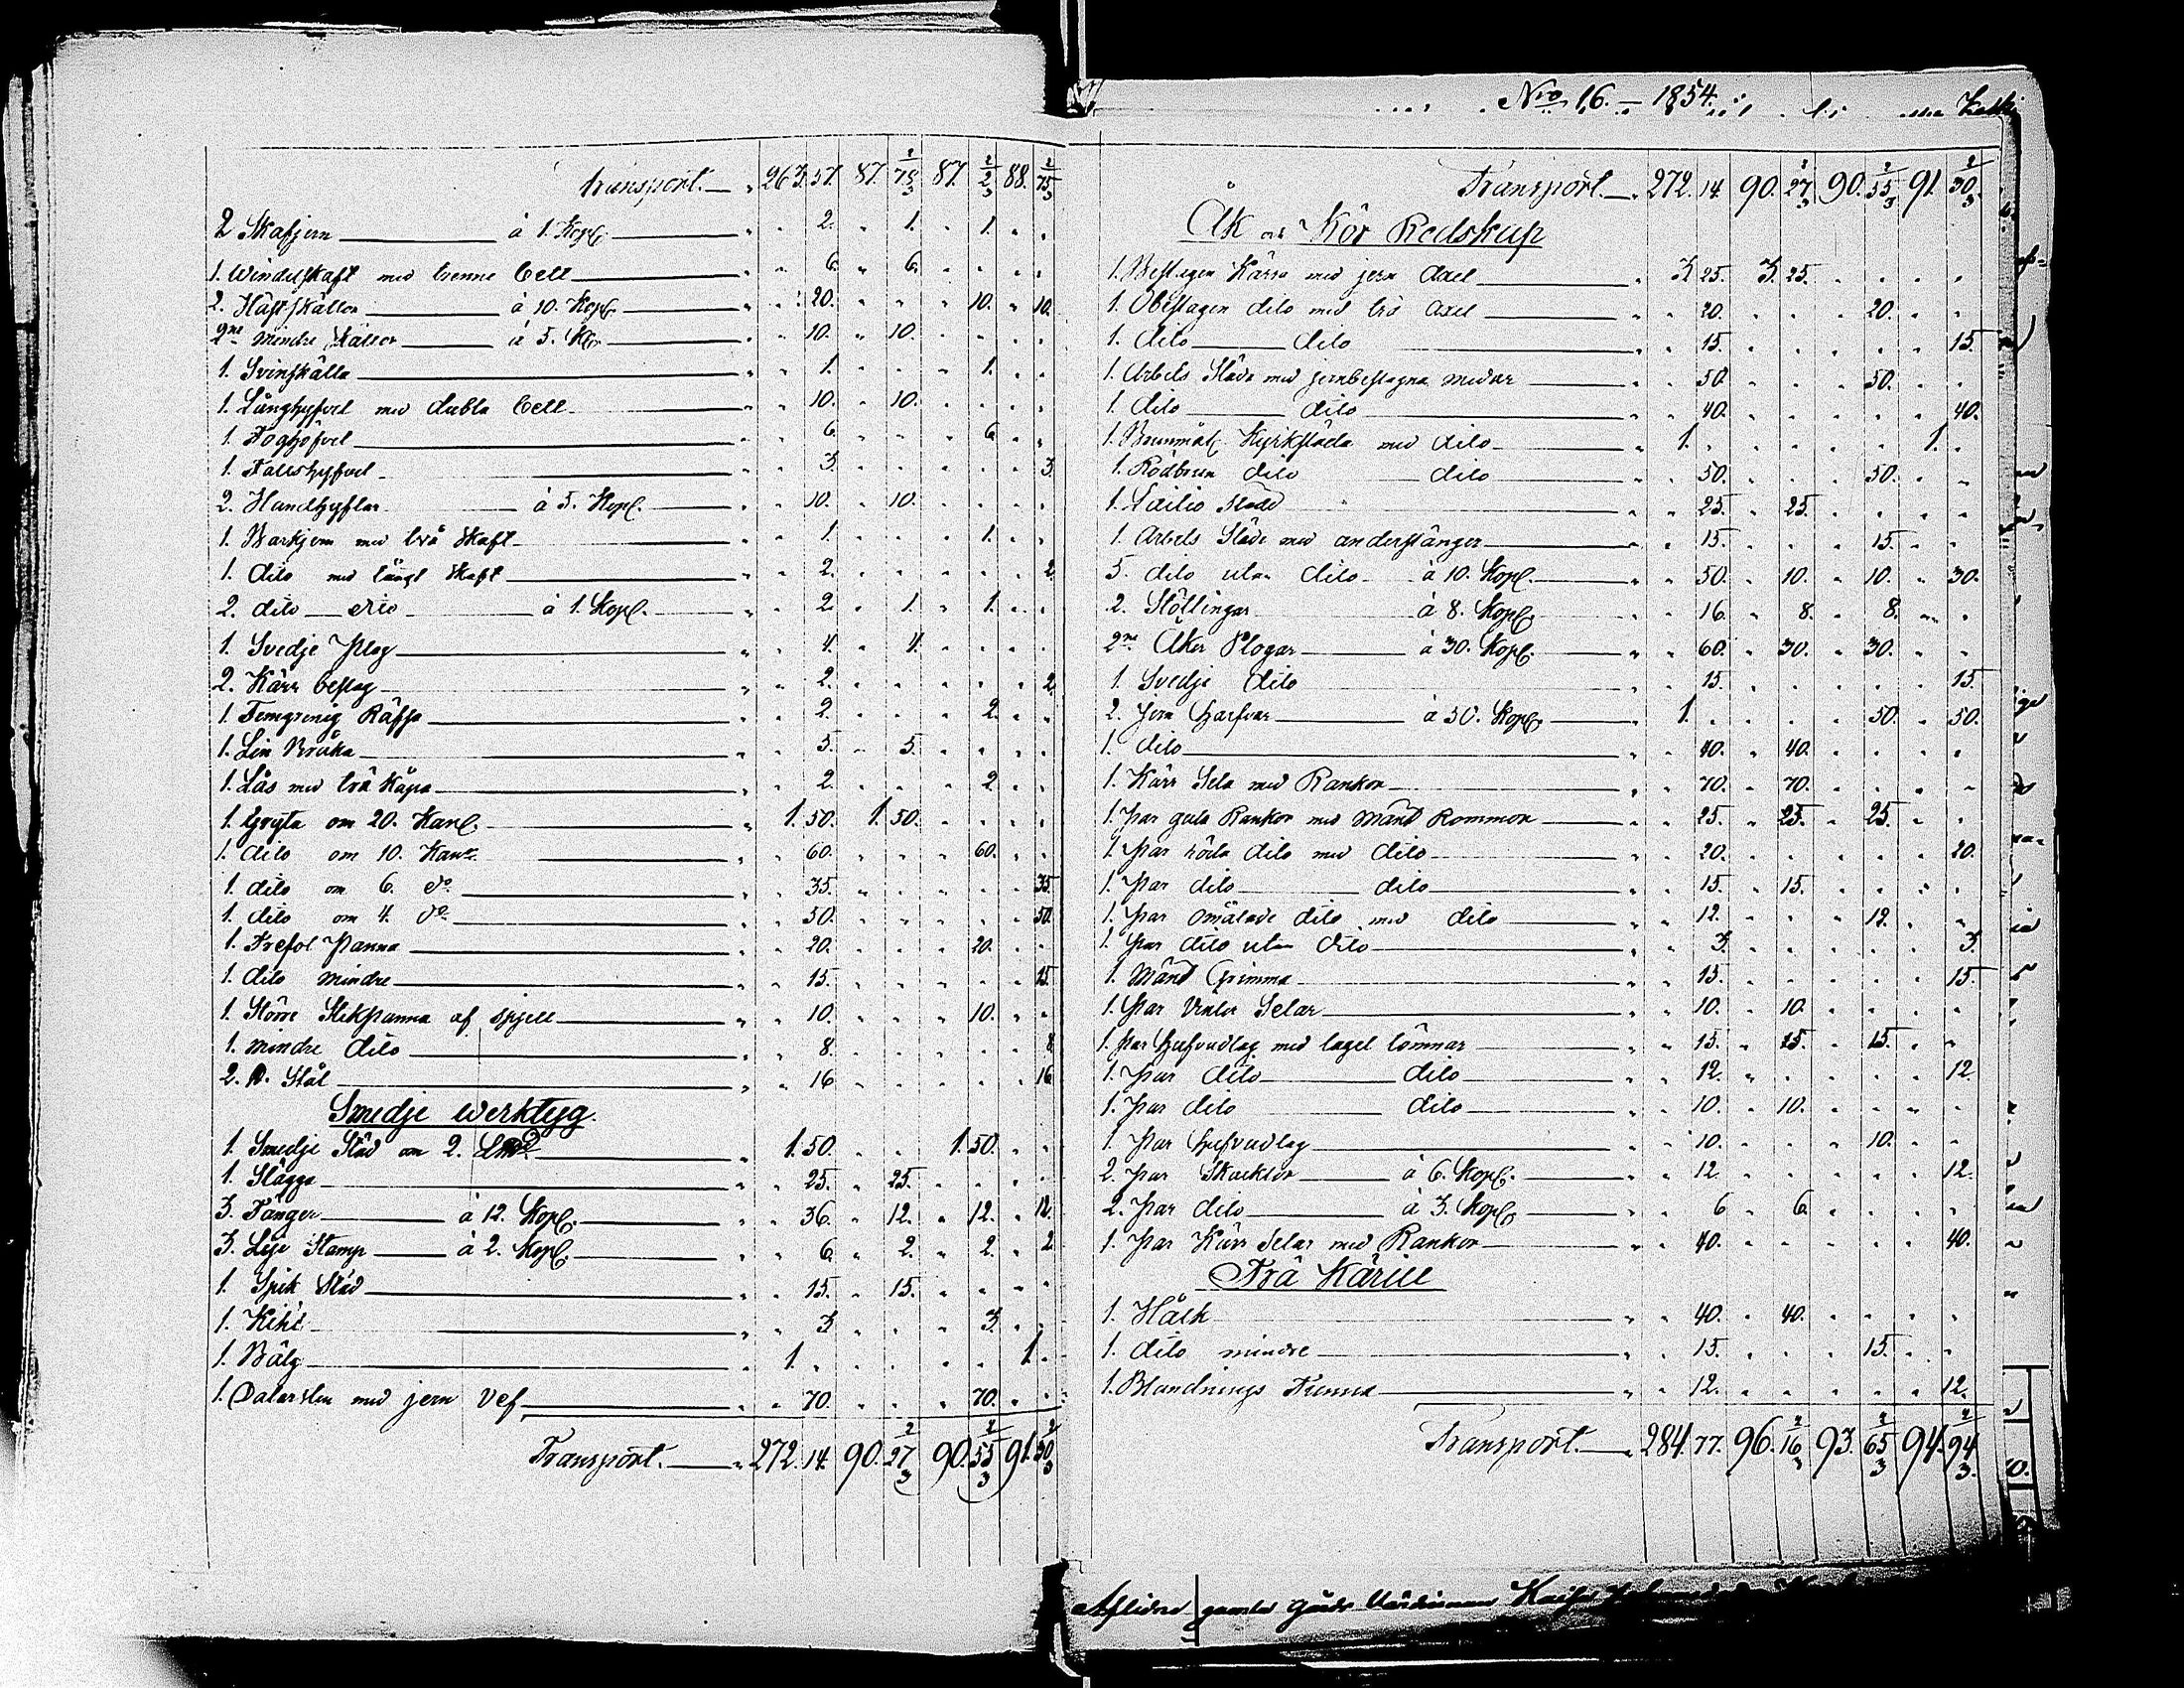 Transport. „ 263. 57. 87. 2/78/3 87. 2/2/3 88. 2/75/3
2 Skafjern à 1. Kop. „ „ 2. „ 1. „ 1. „ „
1. Windelskaft med trenne bett „ „ 6. „ 6. „ „ „ „
2. Häst skällor à 10. Kop. „ „ 20. „ „ „ 10. „ 10.
2ne mindre skällor à 5. Kop. „ „ 10. „ 10. „ „ „ „
1. Svinskälla „ „ 1. „ „ „ 1. „ „
1. Långhyfvel med dubla bett „ „ 10. „ 10. „ „ „ „
1. Foghöfvel „ „ 6. „ „ „ 6. „ „
1. Falsshyfvel „ „ 3. „ „ „ „ „ 3.
2. Handhyflar à 5. Kop. „ „ 10. „ 10. „ „ „ „
1. Barkjern med trä skaft „ „ 1. „ „ „ 1. „ „
1. dito med långt skaft „ „ 2. „ „ „ „ „ 2.
2. dito dito à 1. Kop. „ „ 2. „ 1. „ 1. „ „
1. Svedje plog „ „ 4. „ 4. „ „ „ „
2. Kärr beslag „ „ 2. „ „ „ „ „ 2.
1. Femgrenig Räfsa „ „ 2. „ „ „ 2. „ „
1. Lin Bråka „ „ 5. „ 5. „ „ „ „
1. Lås med trä kåpa „ „ 2. „ „ „ 2. „ „
1. Gryta om 20. Kan. „ 1. 50. 1. 50. „ „ „ „
1. dito om 10. Kanr. „ „ 60. „ „ „ 60. „ „
1. dito om 6. do „ „ 35. „ „ „ „ „ 35.
1. dito om 4. do „ „ 50. „ „ „ „ „ 50.
1. Trefot Panna „ „ 20. „ „ „ 20. „ „
1. dito mindre „ „ 15. „ „ „ „ „ 15.
1. Större Stekpanna af spjell „ „ 10. „ „ „ 10. „ „
1. mindre dito „ „ 8. „ „ „ „ „ 8
2. Stål „ „ 16 „ „ „ „ „ 16
Smedje Werktyg.
1. Smedje Städ om 2. „ 1. 50. „ „ 1. 50. „ „
1. Slägga „ „ 25. „ 25. „ „ „ „
3. Tänger à 12. Kop. „ „ 36. „ 12. „ 12. „ 12.
3. Stamp à 2. Kop. „ „ 6. „ 2. „ 2. „ 2
1. Spik Städ „ „ 15. „ 15. „ „ „ „
1. „ „ 3. „ „ „ 3. „ „
1. Bälg „ 1. „ „ „ „ „ 1. „
1. med jern Vef „ „ 70. „ „ „ 70. „ „
Transport. „ 272. 14. 90. 2/27/3 90. 2/55/3 91. 2/30/3
Nro 16. – 1854.
Transport. „ 272. 14. 90. 2/27/3 90. 2/55/3 91. 2/30/3
Åk och Kör Redskap
1. Beslagen Kärra med jern axel „ 3. 25. 3. 25. „ „ „ „
1. Obeslagen dito med trä axel „ „ 20. „ „ „ 20. „ „
1. dito dito „ „ 15. „ „ „ „ „ 15.
1. Arbets Släde med jernbeslagna medar „ „ 50. „ „ „ 50. „ „
1. dito dito „ „ 40. „ „ „ „ „ 40.
1. Brunmål. Kyrksläda med dito „ 1. „ „ „ „ „ 1. „
1. Rödbrun dito dito „ „ 50. „ „ „ 50. „ „
1. Släde „ „ 25. „ 25. „ „ „ „
1. Arbets Släde med anderstänger „ „ 15. „ „ „ 15. „ „
5. dito utan dito à 10. Kop. „ „ 50. „ 10. „ 10. „ 30.
2. Stöttingar à 8. Kop. „ „ 16. „ 8. „ 8. „ „
2ne Åker Plogar à 30. Kop. „ „ 60. „ 30. „ 30. „ „
1. Svedje dito „ „ 15. „ „ „ „ „ 15.
2. Jern harfvar à 50. Kop. „ 1. „ „ „ „ 50. „ 50.
1. dito „ „ 40. „ 40. „ „ „ „
1. Kärr Sela med Rankor „ „ 70. „ 70. „ „ „ „
1. par gula Rankor med Månd Rommor „ „ 25. „ 25. „ 25. „ „
1. par röda dito med dito „ „ 20. „ „ „ „ „ 20.
1. par dito dito „ „ 15. „ 15. „ „ „ „
1. par omålade dito med dito „ „ 12. „ „ „ 12. „ „
1. par dito utan dito „ „ 3. „ „ „ „ „ 3.
1. Månd Grimma „ „ 15. „ „ „ „ „ 15.
1. par Vinter Selar „ „ 10. „ 10. „ „ „ „
1. par hufvudlag med tagel tömmar „ „ 15. „ 15. „ 15. „ „
1. par dito dito „ „ 12. „ „ „ „ „ 12.
1. par dito dito „ „ 10. „ 10. „ „ „ „
1. par hufvudlag „ „ 10. „ „ „ 10. „ „
2. par Skacklor à 6. Kop. „ „ 12. „ „ „ „ „ 12.
2. par dito à 3. Kop. „ „ 6 „ 6. „ „ „ „
1. par Kärr Selar med Rankor „ „ 40. „ „ „ „ „ 40.
Trä Kärill
1. „ „ 40. „ 40. „ „ „ „
1. dito mindre „ „ 15. „ „ „ 15. „ „
1. Blandnings Tunna „ „ 12. „ „ „ „ „ 12.
Transport. „ 284. 77. 96. 2/16/3 93. 2/65/3 94. 2/94/3
Aflidne gamla